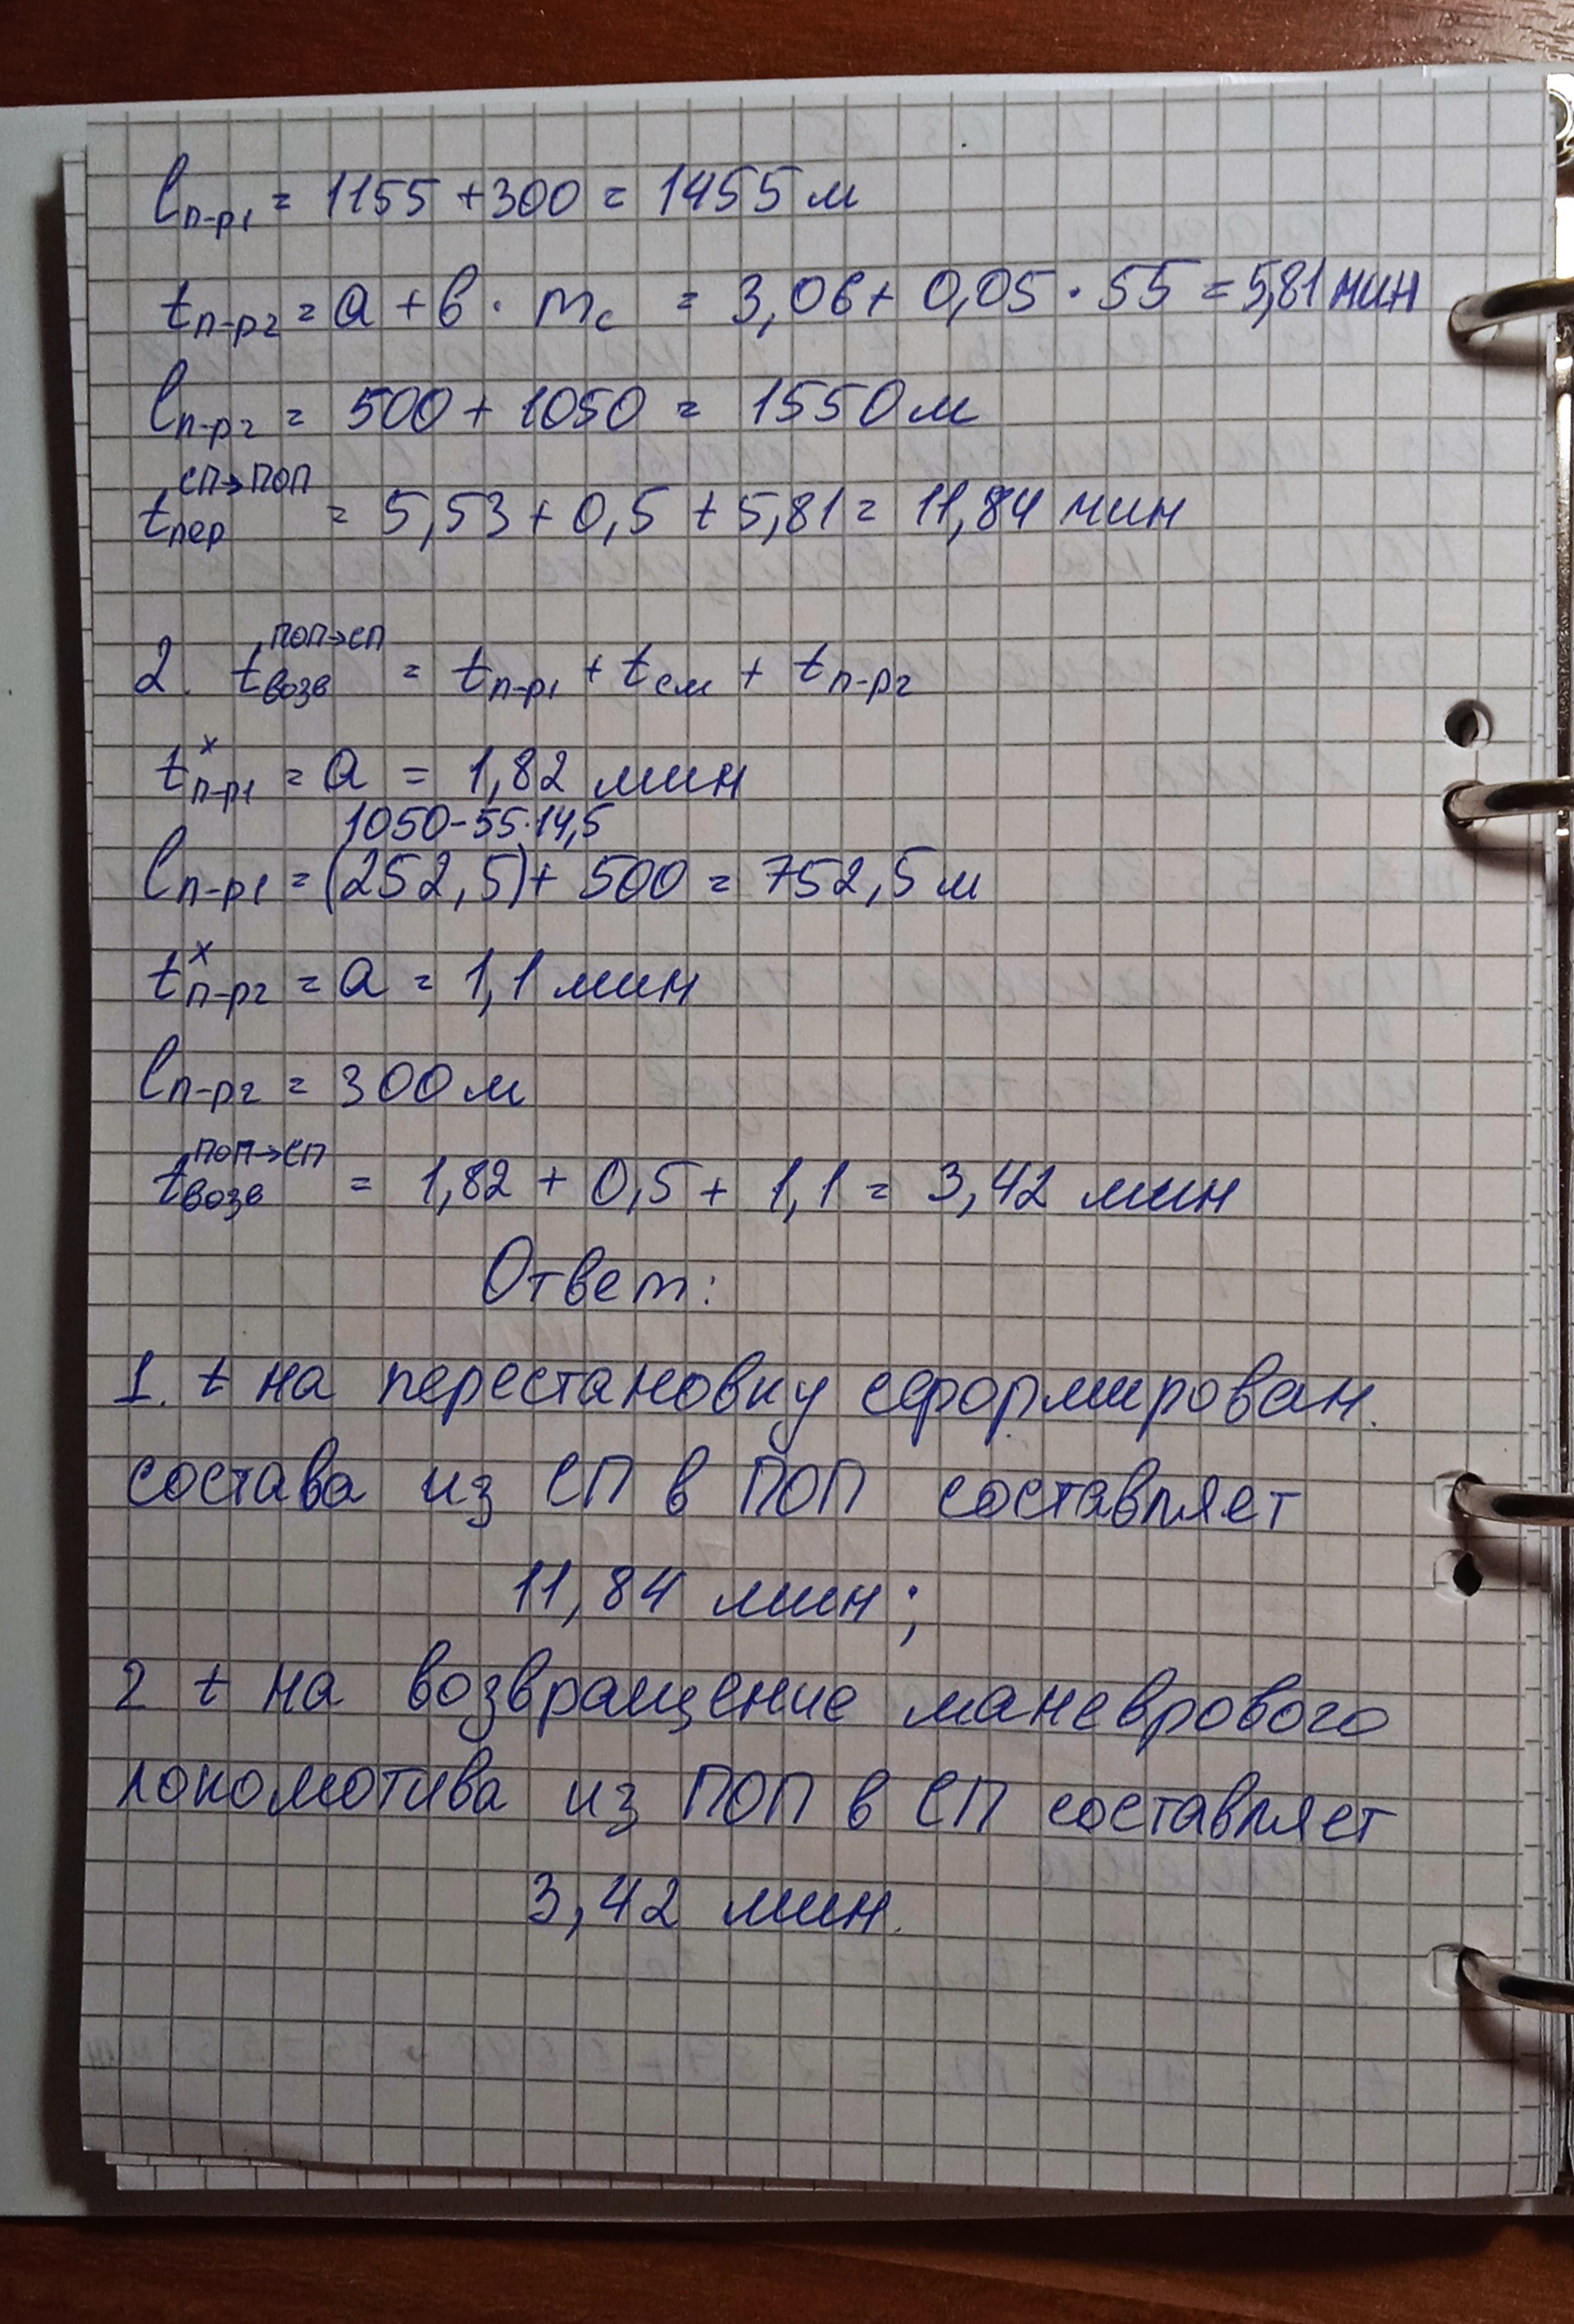 lп-р1 = 1155 + 300 = 1455 м
tп-р2 = а + в · mс = 3,06 + 0,05 · 55 = 5,81 мин
lп-р2 = 500 + 1050 = 1550 м
tпер СП→ПОП = 5,53 + 0,5 + 5,81 = 11,84 мин
2. tвозв ПОП→СП = tп-р1 + tсм + tп-р2
tп-р1 х = а = 1,82 мин
1050-55·14,5
lп-р1 = (252,5) + 500 = 752,5 м
tп-р2 х = а = 1,1 мин
lп-р2 = 300 м
tвозв ПОП→СП = 1,82 + 0,5 + 1,1 = 3,42 мин
Ответ:
1. t на перестановку сформирован.
состава из СП в ПОП составляет
11,84 мин;
2 t на возвращение маневрового
локомотива из ПОП в СП составляет
3,42 мин.